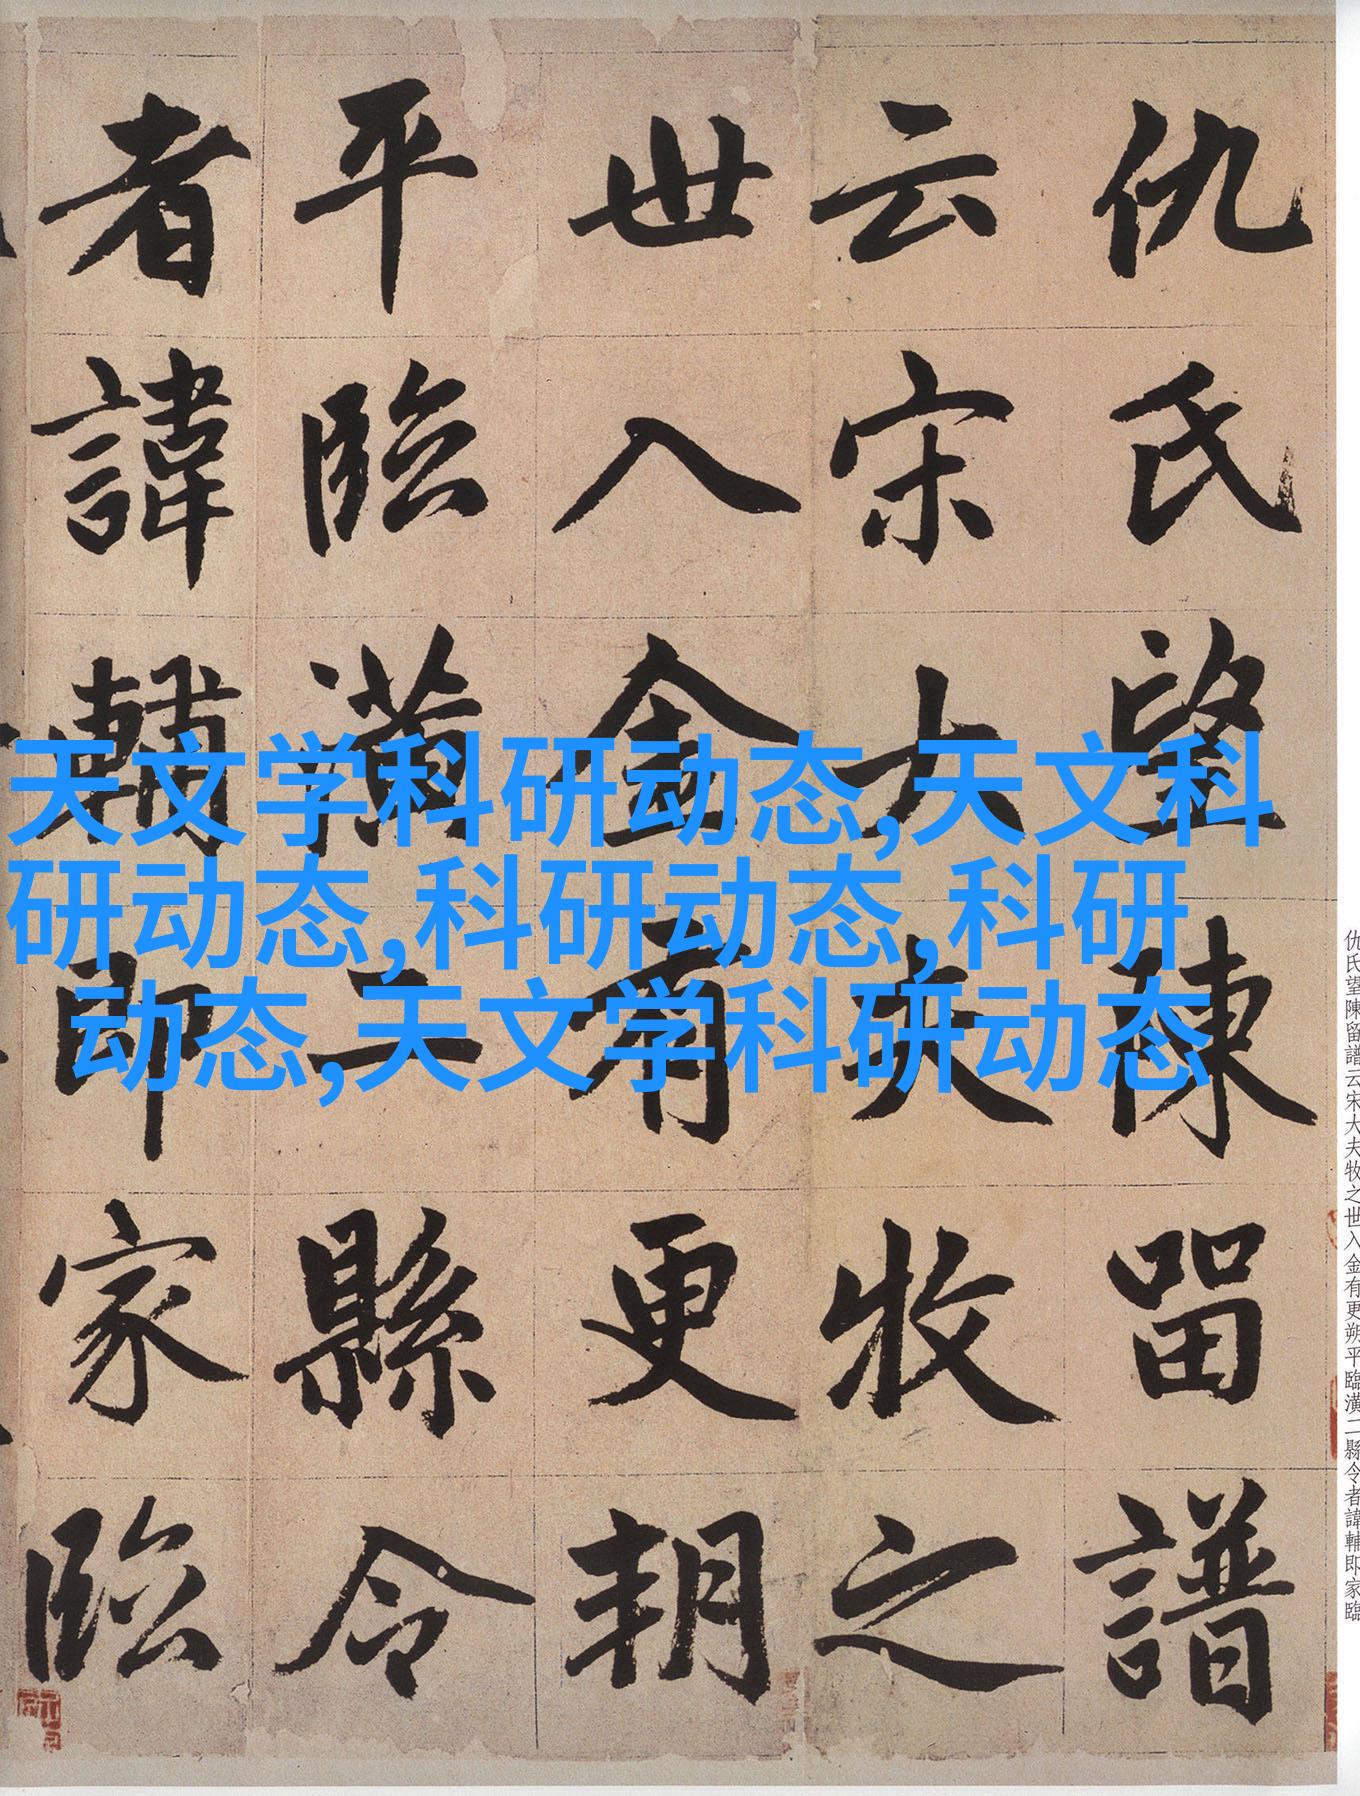 仇氏望陳留譜
云宋大夫牧之
世入金有更朔
平臨潢二縣令
者諱輔即家臨
天文学科研动态,天文科
研动态,科研动态,科研
动态,天文学科研动态
仇氏望陳留譜云宋大夫牧之世入金有更朔平臨潢二縣令者諱輔即家臨